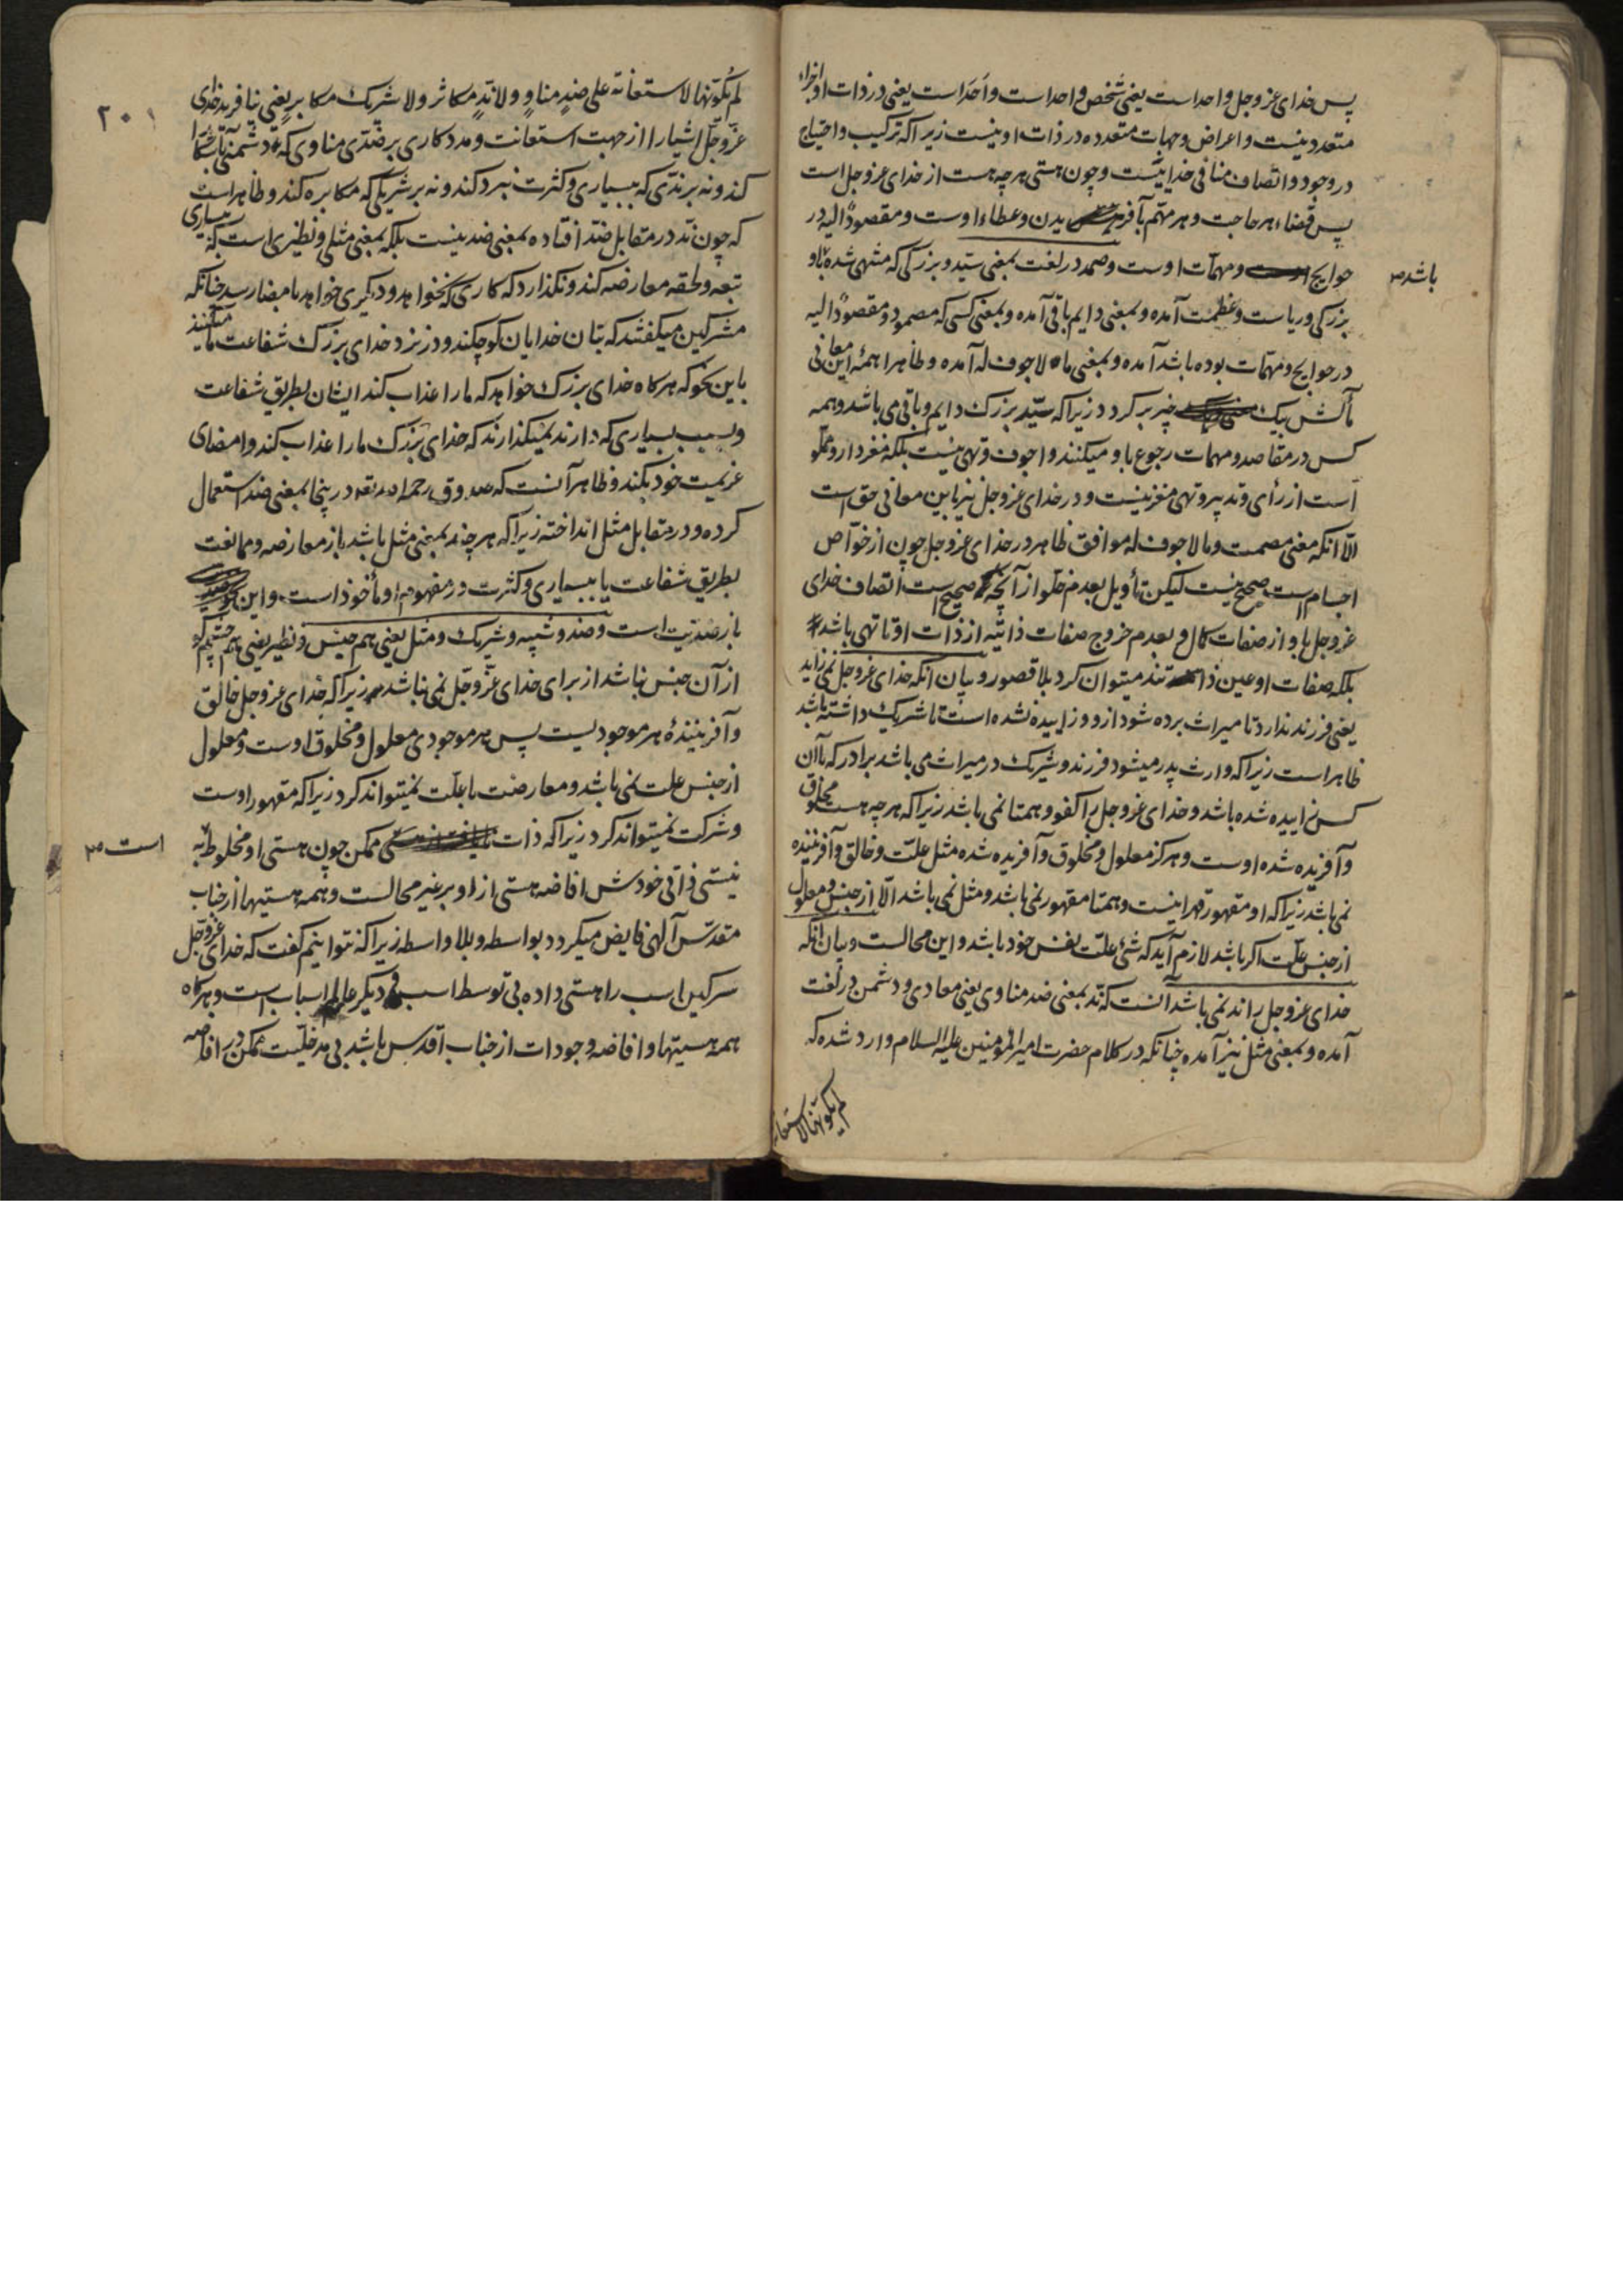 پس خدای عز و جل واحد است یعنی شخص واحد است و اَحَد است یعنی در ذات او اجزاء
متعدد نیست و اعراض و جهات متعدده در ذات او نیست زیرا که ترکیب و احتیاج
در وجود و اتصاف منافی خدائیست و چون هستی هر چه هست از خدای عز و جل است
پس قضاء هر حاجت و هر مهم بآفریدن و عطاء اوست و مقصودٌ الیه در
حوایج و مهمات اوست و صمد در لغت بمعنی سیّد و بزرکی که منتهی شده باو
باشد
بزرکی و ریاست و عظمت آمده و بمعنی دایم باقی آمده و بمعنی کسی که مصمود و مقصودٌ الیه
در حوایج و مهمات بوده باشد آمده و بمعنی ما لا جوف له آمده و ظاهرا همهٔ این معانی
مآلش بیک چیز بر کردد زیرا که سیّد بزرک دایم و باقی می باشد و همه
کس در مقاصد و مهمات رجوع باو میکنند و اجوف و تهی نیست بلکه مغز دار و مملو
است از رأی و تدبیر و تهی مغز نیست و در خدای عز و جل نیز باین معانی حق است
الّا انکه معنی مصمت و ما لا جوف له موافق ظاهر در خدای عز و جل چون از خوّاص
اجسام است صحیح نیست لیکن تأویل بعدم خلو از آنچه صحیح است اتصاف خدای
عز و جل باو از صفات کمال و بعدم خروج صفات ذاتیّه از ذات او تا تهی باشد
بلکه صفات او عین ذاتند میتوان کرد بلا قصور و بیان انکه خدای عز و جل نمی زاید
یعنی فرزند ندارد تا میراث برده شود ازو و زاییده نشده است تا شریک داشته باشد
ظاهر است زیرا که وارث پدر میشود فرزند و شریک در میراث می باشد برادر که با آن
کس زاییده شده باشد و خدای عز و جل را کفو و همتا نمی باشد زیرا که هر چه هست مخلوق
و آفریده شده اوست و هرکز معلول و مخلوق و آفریده شده مثل علّت و خالق و آفریننده
نمی باشد زیرا که او مقهور قهر اینست و همتا مقهور نمی باشد و مثل نمی باشد الّا از جنس و معلول
از جنس علّت اکر باشد لازم آید که شیٔ علّت نفس خود باشد و این محالست و بیان انکه
خدای عز و جل را ند نمی باشد آنست که ند بمعنی ضد مناوی یعنی معادی و دشمن در لغت
آمده و بمعنی مثل نیز آمده چنانکه در کلام حضرت امیر المؤمنین علیه السلام وارد شده که
لم یکونها لاستعانة
۲۰۱
لم یکونها لاستعانة علی ضدٍ مناوٍ و لا ندٍ مکاثر و لا شریک مکابر یعنی نیافرید خدای
عزّ و جلّ اشیا را از جهت استعانت و مددکاری بر ضدّی مناوی که دشمنی آشکارا
کند و نه بر ندّی که ببسیاری و کثرت نبرد کند و نه بر شریکی که مکابره کند و ظاهر است
که چون ند در مقابل ضدّ افتاده بمعنی ضد نیست بلکه بمعنی مثلی و نظیری است که بسیاری
تبعه و لحقه معارضه کند و نکذارد که کاری که نخواهد و دیکری خواهد بامضا رسد چنانکه
مشرکین میکفتند که بتان خدایان کوچکند و در نزد خدای بزرک شفاعت ما میکنند
باین نحو که هرکاه خدای بزرک خواهد که ما را عذاب کند ایشان بطریق شفاعت
و بسبب بسیاری که دارند نمیکذارند که خدای بزرک ما را عذاب کند و امضای
عزیمت خود بکند و ظاهر آنست که صدوق رحمه الله ند در اینجا بمعنی ضد استعمال
کرده و در مقابل مثل انداخته زیرا که هر چند بمعنی مثل باشد باز معارضه و ممانعت
بطریق شفاعت یا ببسیاری و کثرت در مفهوم او مأخوذ است و این نحو
باز ضدیت است و ضد و شبیه و شریک و مثل یعنی هم جنس و نظیر یعنی هم چشم که
از آن جنس نباشد از برای خدای عزّ و جلّ نمی باشد زیرا که خدای عز و جل خالق
و آفرینندهٔ هر موجودیست پس هر موجودی معلول و مخلوق اوست و معلول
از جنس علت نمی باشد و معارضت با علّت نمیتواند کرد زیرا که مقهور اوست
و شرکت نمیتواند کرد زیرا که ذات ممکن چون هستی او مخلوط به
است
نیستی ذاتی خودش افاضه هستی از او بر غیر محالست و همه هستیها از جناب
مقدّس آلهی فایض میکردد بواسطه و بلا واسطه زیرا که نتوانیم کفت که خدای عز و جل
سرکین اسب را هستی داده بی توسط اسب و دیکر عالم اسباب است و هرکاه
همه هستیها و افاضه وجودات از جناب اقدس باشد بی مدخلیّت ممکن در افاضه